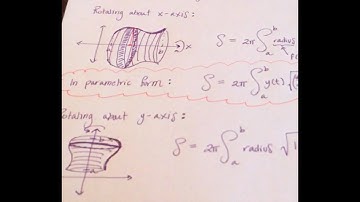 Rotating about x-axis:
S = 2π ∫ₐᵇ radius
x
In parametric form: S = 2π ∫ₐᵇ y(t) √
Rotating about y-axis:
S = 2π ∫ₐᵇ radius √1